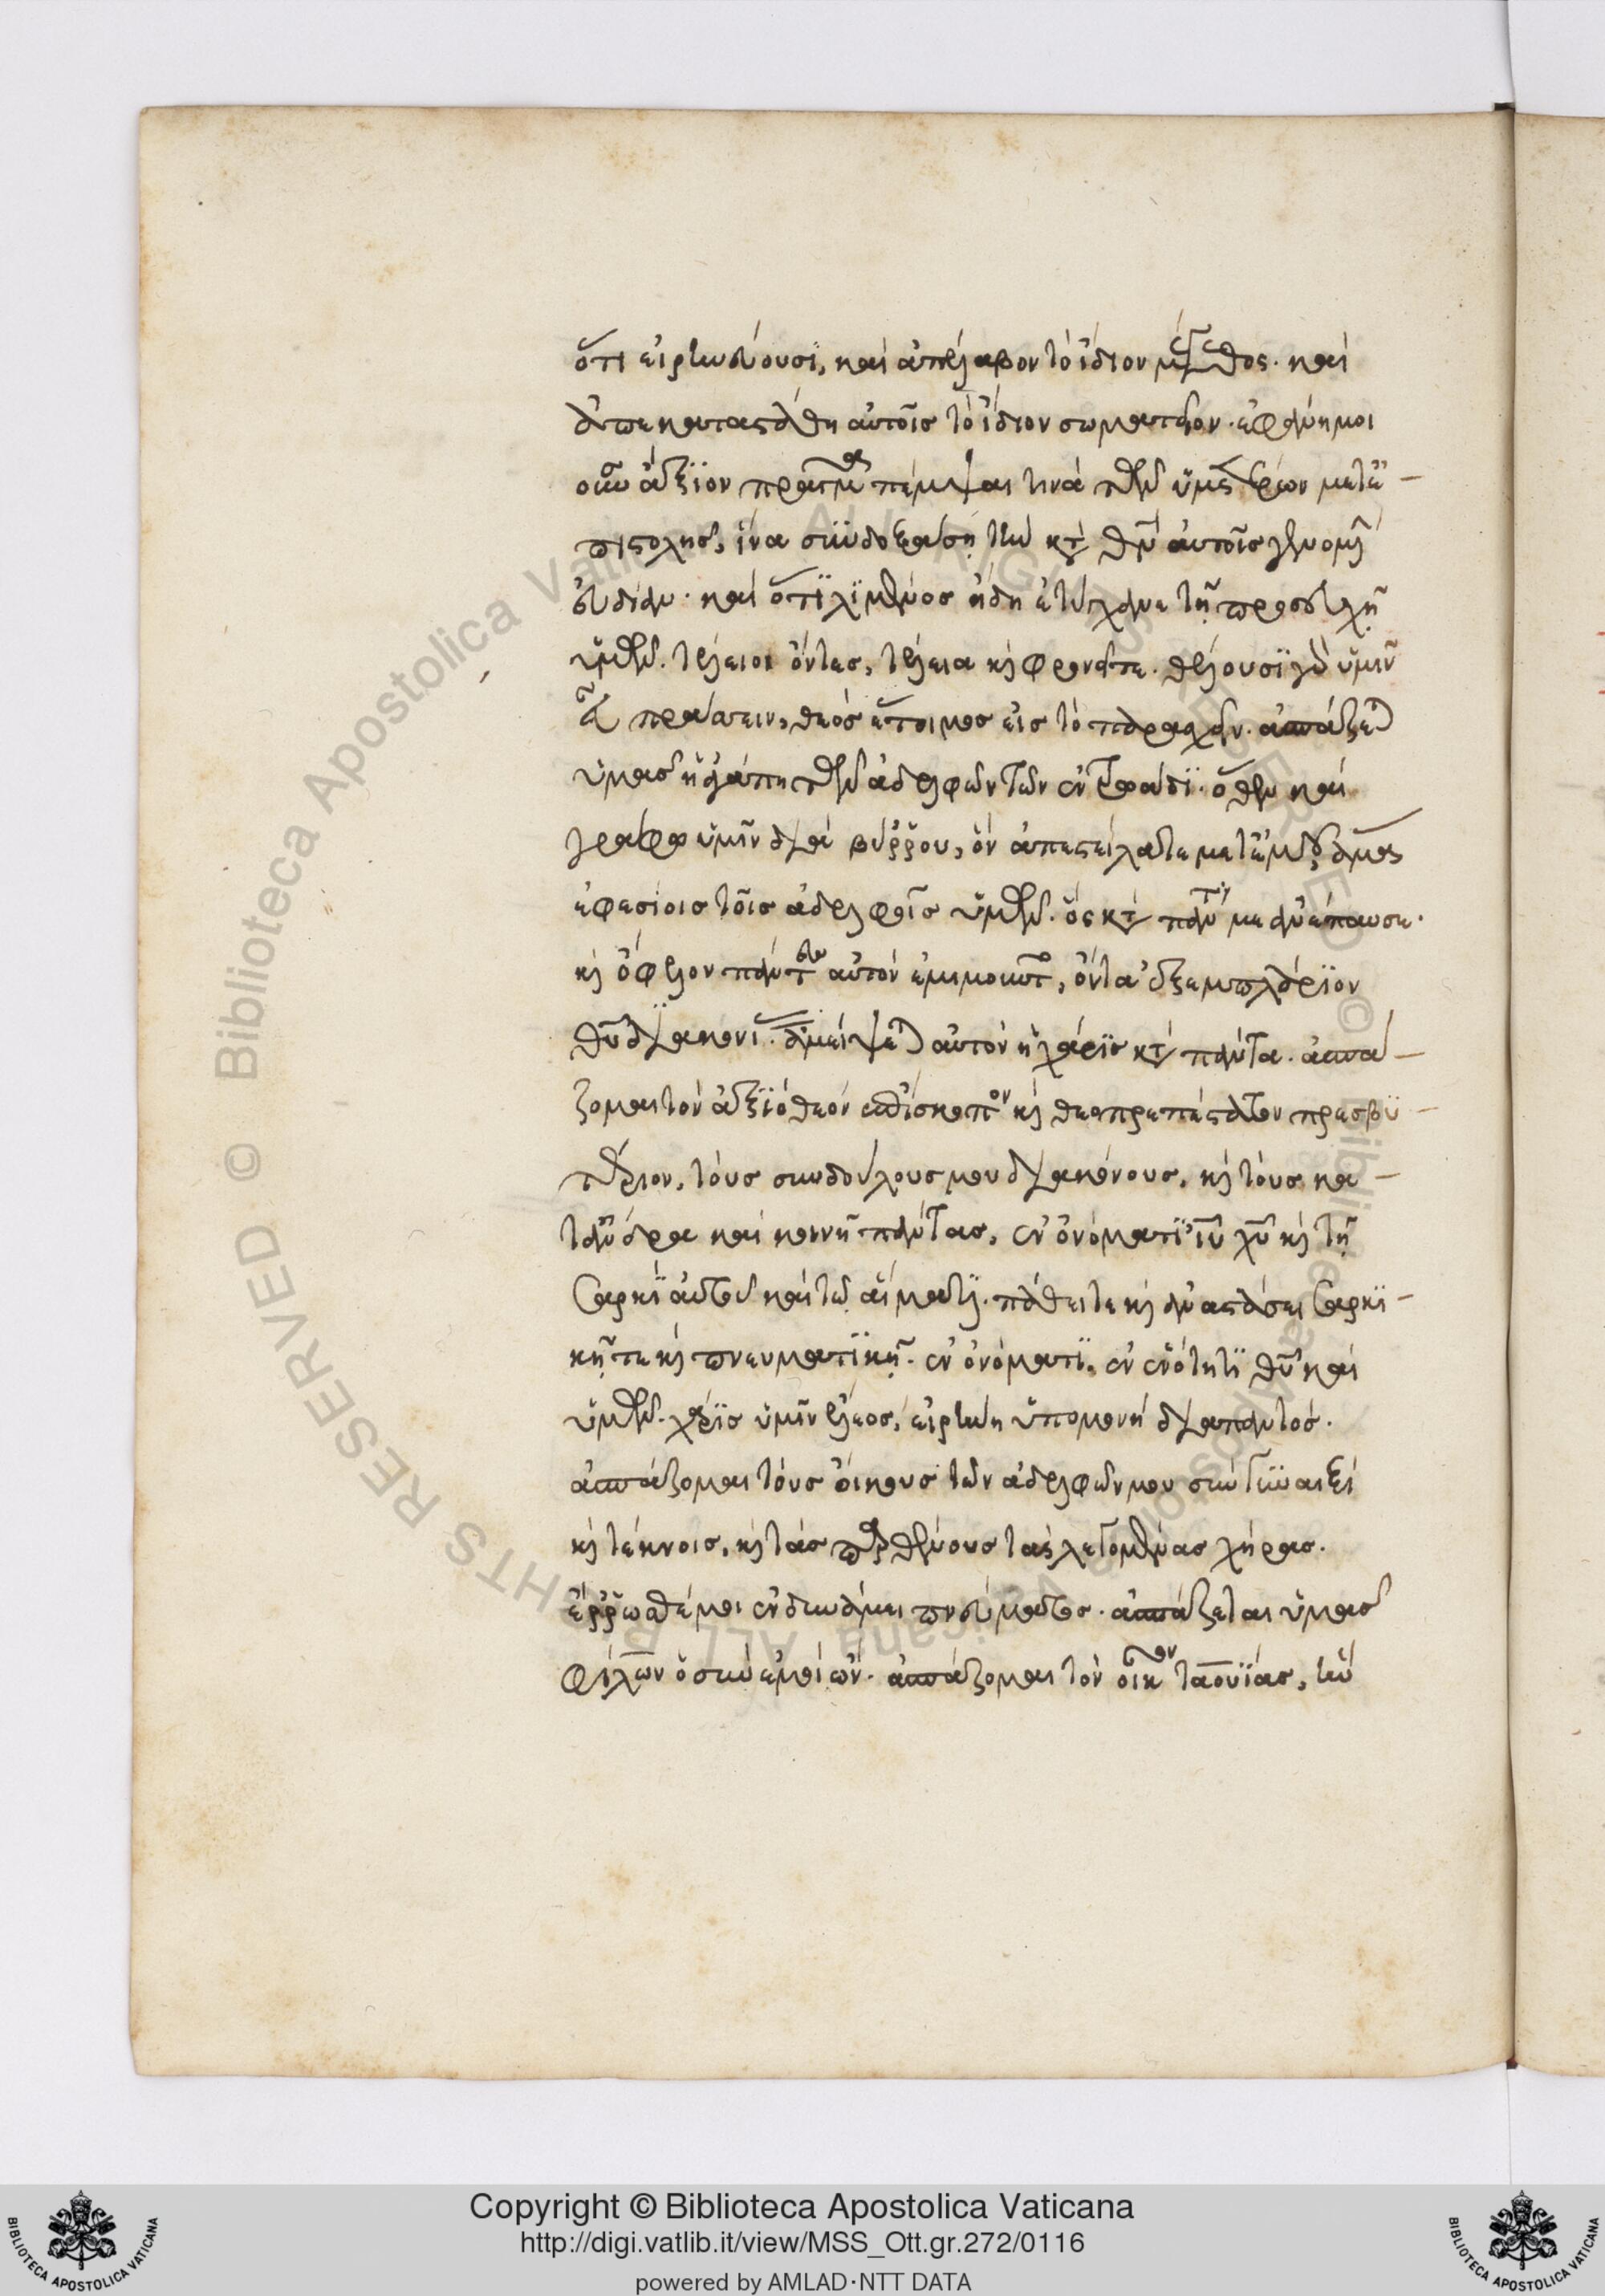 ὅτι εἰρηνεύουσι, καὶ ἀπέλαβον τὸ ἴδιον μέγεθος. καὶ
ἀπεκατεστάθη αὐτοῖς τὸ ἴδιον σωματεῖον. ἐφάνη μοι
οὖν ἄξιον πρᾶγμα πέμψαι τινὰ τῶν ὑμετέρων μετ' ἐ-
πιστολῆς, ἵνα συνδοξάσῃ τὴν κατὰ θυ αὐτοῖς γενομένην
εὐδίαν. καὶ ὅτι λιμένος ἤδη ἐτύγχανε τῇ προσευχῇ
ὑμῶν. τέλειοι ὄντες, τέλεια καὶ φρονεῖτε. θέλουσι γὰρ ὑμῖν
εὖ πράττειν, θεὸς ἕτοιμος εἰς τὸ παρασχεῖν. ἀσπάζεται
ὑμᾶς ἡ ἀγάπη τῶν ἀδελφῶν τῶν ἐν τρωάδι. ὅθεν καὶ
γράφω ὑμῖν διὰ βύρρου, ὃν ἀπεστείλατε μετ' ἐμοῦ ἅμα
ἐφεσίοις τοῖς ἀδελφοῖς ὑμῶν. ὃς κατὰ πάντα με ἀνέπαυσε.
καὶ ὄφελον πάντες αὐτὸν ἐμιμοῦντο, ὄντα ἐξεμπλάριον
θυ διακονία. ἀμείψεται αὐτὸν ἡ χάρις κατὰ πάντα. ἀσπά-
ζομαι τὸν ἀξιόθεον ἐπίσκοπον καὶ θεοπρεπέστατον πρεσβυ-
τέριον, τοὺς συνδούλους μου διακόνους, καὶ τοὺς κα-
τ' ἄνδρα καὶ κοινῇ πάντας, ἐν ὀνόματι ιυ χυ καὶ τῇ
σαρκὶ αὐτοῦ καὶ τῷ αἵματι. πάθει τε καὶ ἀναστάσει σαρκι-
κῇ τε καὶ πνευματικῇ. ἐν ὀνόματι, ἐν ἑνότητι θυ καὶ
ὑμῶν. χάρις ὑμῖν ἔλεος, εἰρήνη ὑπομονὴ διαπαντός.
ἀσπάζομαι τοὺς οἴκους τῶν ἀδελφῶν μου σὺν γυναιξὶ
καὶ τέκνοις, καὶ τὰς παρθένους τὰς λεγομένας χήρας.
ἔρρωσθέ μοι ἐν δυνάμει πνεύματος. ἀσπάζεται ὑμᾶς
φίλων ὁ σὺν ἐμοὶ ὤν. ἀσπάζομαι τὸν οἶκον ταουίας, ἣν
Copyright © Biblioteca Apostolica Vaticana
http://digi.vatlib.it/view/MSS_Ott.gr.272/0116
powered by AMLAD·NTT DATA
BIBLIOTECA APOSTOLICA VATICANA
BIBLIOTECA APOSTOLICA VATICANA
© Biblioteca Apostolica Vaticana ALL RIGHTS RESERVED
© Biblioteca Apostolica Vaticana ALL RIGHTS RESERVED